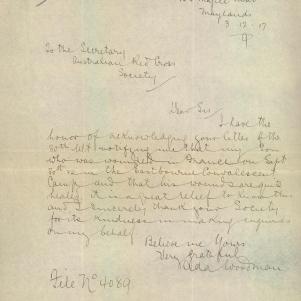 Maylands
3-12-17
To the Secretary
Australian Red Cross
Society
Dear Sir
I have the
honor of acknowledging your letter of the
30th ult notifying me that my son
who was wounded in France on Sept
30th is in the Eastbourne Convalescent
Camp and that his wounds are quite
healed it is a great relief to know this
and I sincerely thank your Society
for its kindness in making enquiries
on my behalf
Believe me Yours
Very grateful
Ada Woodman
File No 4089